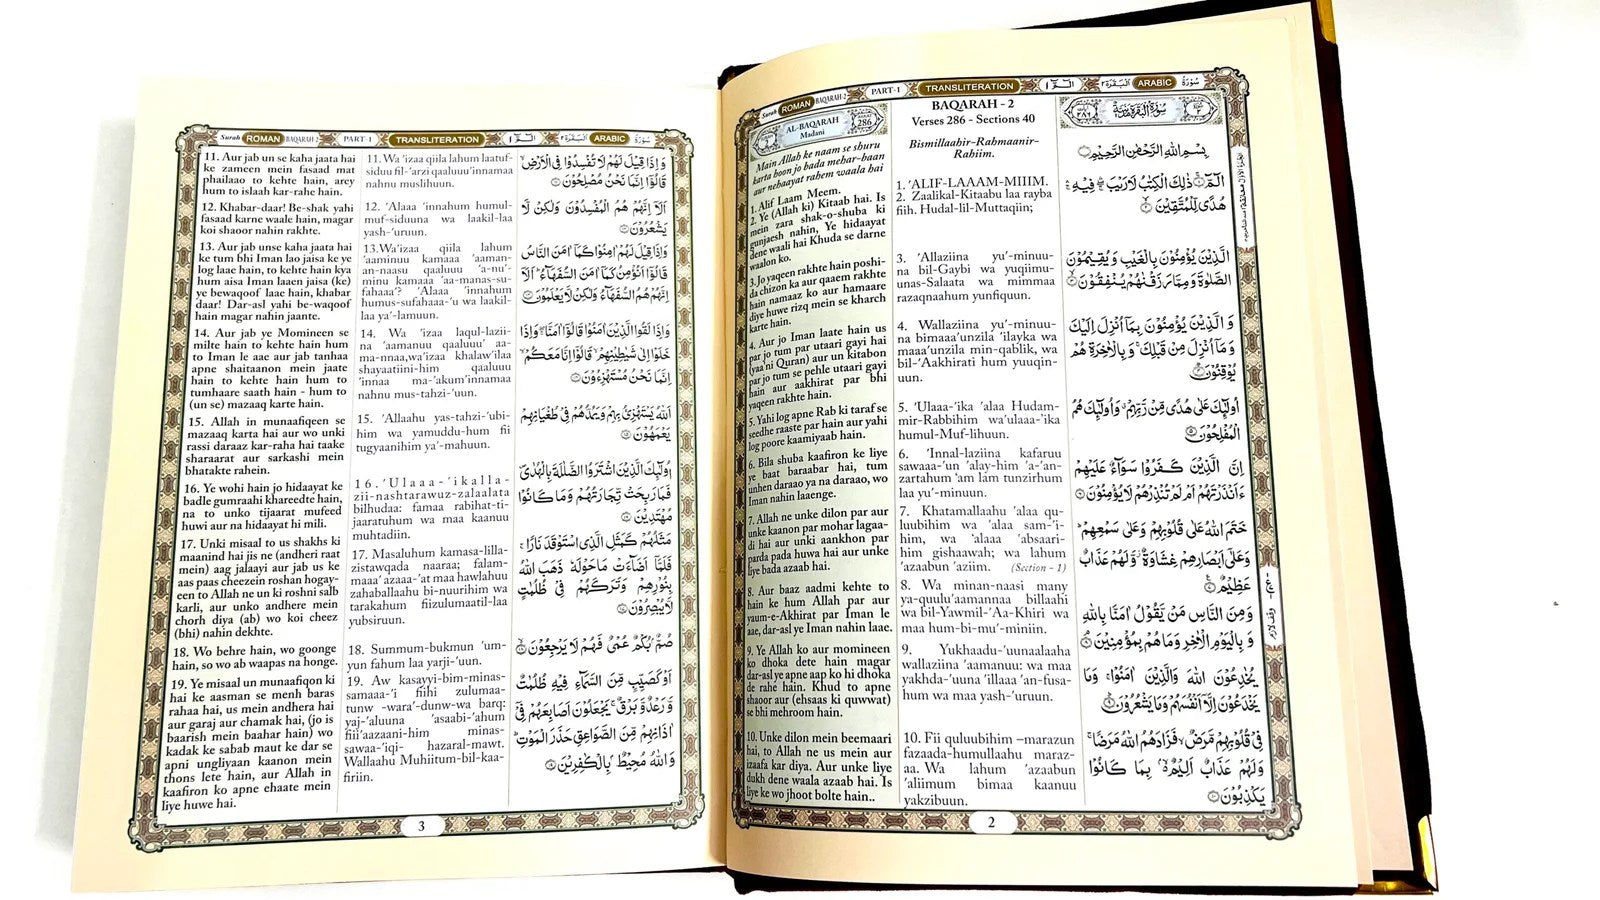 Surah ROMAN BAQARAH-2 PART-1 TRANSLITERATION الٓمّٓ ١ البقرة ٢ ARABIC سُوْرَةُ
AL-BAQARAH
Madani
286
Main Allah ke naam se shuru
karta hoon jo bada mehar-baan
aur nehaayat rahem waala hai
1. Alif Laam Meem.
2. Ye (Allah ki) Kitaab hai. Is
mein zara shak-o-shuba ki
gunjaesh nahin, Ye hidaayat
dene waali hai Khuda se darne
waalon ko.
3. Jo yaqeen rakhte hain poshi-
da chizon ka aur qaaem rakhte
hain namaaz ko aur hamaare
diye huwe rizq mein se kharch
karte hain.
4. Aur jo Iman laate hain us
par jo tum par utaari gayi hai
(yaa'ni Quran) aur un kitabon
par jo tum se pehle utaari gayi
hain aur aakhirat par bhi
yaqeen rakhte hain.
5. Yahi log apne Rab ki taraf se
seedhe raaste par hain aur yahi
log poore kaamiyaab hain.
6. Bila shuba kaafiron ke liye
ye baat baraabar hai, tum
unhen daraao ya na daraao, wo
Iman nahin laaenge.
7. Allah ne unke dilon par aur
unke kaanon par mohar lagaa-
di hai aur unki aankhon par
parda pada huwa hai aur unke
liye bada azaab hai.
8. Aur baaz aadmi kehte to
hain ke hum Allah par aur
yaum-e-Akhirat par Iman le
aae, dar-asl ye Iman nahin laae.
9. Ye Allah ko aur momineen
ko dhoka dete hain magar
dar-asl ye apne aap ko hi dhoka
de rahe hain. Khud to apne
shaoor aur (ehsaas ki quwwat)
se bhi mehroom hain.
10. Unke dilon mein beemaari
hai, to Allah ne us mein aur
izaafa kar diya. Aur unke liye
dukh dene waala azaab hai. Is
liye ke wo jhoot bolte hain..
BAQARAH - 2
Verses 286 - Sections 40
Bismillaahir-Rahmaanir-
Rahiim.
1. 'ALIF-LAAAM-MIIIM.
2. Zaalikal-Kitaabu laa rayba
fiih. Hudal-lil-Muttaqiin;
3. 'Allaziina yu'-minuu-
na bil-Gaybi wa yuqiimu-
unas-Salaata wa mimmaa
razaqnaahum yunfiquun.
4. Wallaziina yu'-minuu-
na bimaaa'unzila 'ilayka wa
maaa'unzila min-qablik, wa
bil-'Aakhirati hum yuuqin-
uun.
5. 'Ulaaa-'ika 'alaa Hudam-
mir-Rabbihim wa'ulaaa-'ika
humul-Muf-lihuun.
6. 'Innal-laziina kafaruu
sawaaa-'un 'alay-him 'a-'an-
zartahum 'am lam tunzirhum
laa yu'-minuun.
7. Khatamallaahu 'alaa qu-
luubihim wa 'alaa sam-'i-
him, wa 'alaaa 'absaari-
him gishaawah; wa lahum
'azaabun 'aziim. (Section - 1)
8. Wa minan-naasi many
ya-quulu'aamannaa billaahi
wa bil-Yawmil-'Aa-Khiri wa
maa hum-bi-mu'-miniin.
9. Yukhaadu-'uunaalaaha
wallaziina 'aamanuu: wa maa
yakhda-'uuna 'illaaa 'an-fusa-
hum wa maa yash-'uruun.
10. Fii quluubihim –marazun
fazaada-humullaahu maraz-
aa. Wa lahum 'azaabun
'aliimum bimaa kaanuu
yakzibuun.
بِسْمِ اللّٰهِ الرَّحْمٰنِ الرَّحِيْمِ
الٓمّٓ ذٰلِكَ الْكِتٰبُ لَا رَيْبَ ۛ فِيْهِ ۛ
هُدًى لِّلْمُتَّقِيْنَ
الَّذِيْنَ يُؤْمِنُوْنَ بِالْغَيْبِ وَ يُقِيْمُوْنَ
الصَّلٰوةَ وَ مِمَّا رَزَقْنٰهُمْ يُنْفِقُوْنَ
وَ الَّذِيْنَ يُؤْمِنُوْنَ بِمَاۤ اُنْزِلَ اِلَيْكَ
وَ مَاۤ اُنْزِلَ مِنْ قَبْلِكَ ۚ وَ بِالْاٰخِرَةِ هُمْ
يُوْقِنُوْنَ
اُولٰٓئِكَ عَلٰى هُدًى مِّنْ رَّبِّهِمْ ۙ وَ اُولٰٓئِكَ هُمُ
الْمُفْلِحُوْنَ
اِنَّ الَّذِيْنَ كَفَرُوْا سَوَآءٌ عَلَيْهِمْ
ءَاَنْذَرْتَهُمْ اَمْ لَمْ تُنْذِرْهُمْ لَا يُؤْمِنُوْنَ
خَتَمَ اللّٰهُ عَلٰى قُلُوْبِهِمْ وَعَلٰى سَمْعِهِمْ ؕ
وَعَلٰۤى اَبْصَارِهِمْ غِشَاوَةٌ ۫ وَّلَهُمْ عَذَابٌ
عَظِيْمٌ
وَمِنَ النَّاسِ مَنْ يَّقُوْلُ اٰمَنَّا بِاللّٰهِ
وَ بِالْيَوْمِ الْاٰخِرِ وَمَا هُمْ بِمُؤْمِنِيْنَ
يُخٰدِعُوْنَ اللّٰهَ وَالَّذِيْنَ اٰمَنُوْا ۚ وَمَا
يَخْدَعُوْنَ اِلَّاۤ اَنْفُسَهُمْ وَمَا يَشْعُرُوْنَ
فِيْ قُلُوْبِهِمْ مَّرَضٌ ۙ فَزَادَهُمُ اللّٰهُ مَرَضًا ۚ
وَلَهُمْ عَذَابٌ اَلِيْمٌۢ ۙ بِمَا كَانُوْا
يَكْذِبُوْنَ
2
Surah ROMAN BAQARAH-2 PART-1 TRANSLITERATION الٓمّٓ ١ البقرة ٢ ARABIC سُوْرَةُ
11. Aur jab un se kaha jaata hai
ke zameen mein fasaad mat
phailaao to kehte hain, arey
hum to islaah kar-rahe hain.
12. Khabar-daar! Be-shak yahi
fasaad karne waale hain, magar
koi shaoor nahin rakhte.
13. Aur jab unse kaha jaata hai
ke tum bhi Iman lao jaisa ke ye
log laae hain, to kehte hain kya
hum aisa Iman laaen jaisa (ke)
ye bewaqoof laae hain, khabar
daar! Dar-asl yahi be-waqoof
hain magar nahin jaante.
14. Aur jab ye Momineen se
milte hain to kehte hain hum
to Iman le aae aur jab tanhaa
apne shaitaanon mein jaate
hain to kehte hain hum to
tumhaare saath hain - hum to
(un se) mazaaq karte hain.
15. Allah in munaafiqeen se
mazaaq karta hai aur wo unki
rassi daraaz kar-raha hai taake
sharaarat aur sarkashi mein
bhatakte rahein.
16. Ye wohi hain jo hidaayat ke
badle gumraahi khareedte hain,
na to unko tijaarat mufeed
huwi aur na hidaayat hi mili.
17. Unki misaal to us shakhs ki
maanind hai jis ne (andheri raat
mein) aag jalaayi aur jab us ke
aas paas cheezein roshan hogay-
een to Allah ne un ki roshni salb
karli, aur unko andhere mein
chorh diya (ab) wo koi cheez
(bhi) nahin dekhte.
18. Wo behre hain, wo goonge
hain, so wo ab waapas na honge.
19. Ye misaal un munaafiqon ki
hai ke aasman se menh baras
rahaa hai, us mein andhera hai
aur garaj aur chamak hai, (jo is
baarish mein baahar hain) wo
kadak ke sabab maut ke dar se
apni ungliyaan kaanon mein
thons lete hain, aur Allah in
kaafiron ko apne ehaate mein
liye huwe hai.
11. Wa 'izaa qiila lahum laatuf-
siduu fil-'arzi qaaluuu'innamaa
nahnu muslihuun.
12. 'Alaaa 'innahum humul-
muf-siduuna wa laakil-laa
yash-'uruun.
13.Wa'izaa qiila lahum
'aaminuu kamaaa 'aaman-
an-naasu qaaluuu 'a-nu'-
minu kamaaa 'aa-manas-su-
fahaaa'? 'Alaaa 'innahum
humus-sufahaaa-'u wa laakil-
laa ya'-lamuun.
14. Wa 'izaa laqul-lazii-
na 'aamanuu qaaluuu' aa-
ma-nnaa,wa'izaa khalaw'ilaa
shayaatiini-him qaaluuu
'innaa ma-'akum'innamaa
nahnu mus-tahzi-'uun.
15. 'Allaahu yas-tahzi-'ubi-
him wa yamuddu-hum fii
tugyaanihim ya'-mahuun.
16. 'Ulaaa-'ikalla-
zii-nashtarawuz-zalaalata
bilhudaa: famaa rabihat-ti-
jaaratuhum wa maa kaanuu
muhtadiin.
17. Masaluhum kamasa-lilla-
zistawqada naaraa; falam-
maaa' azaaa-'at maa hawlahuu
zahaballaahu bi-nuurihim wa
tarakahum fiizulumaatil-laa
yubsiruun.
18. Summum-bukmun 'um-
yun fahum laa yarji-'uun.
19. Aw kasayyi-bim-minas-
samaaa-'i fiihi zulumaa-
tunw -wara'-dunw-wa barq:
yaj-'aluuna 'asaabi-'ahum
fiii'aazaani-him minas-
sawaa-'iqi- hazaral-mawt.
Wallaahu Muhiitum-bil-kaa-
firiin.
وَ اِذَا قِيْلَ لَهُمْ لَا تُفْسِدُوْا فِي الْاَرْضِ ۙ
قَالُوْۤا اِنَّمَا نَحْنُ مُصْلِحُوْنَ
اَلَاۤ اِنَّهُمْ هُمُ الْمُفْسِدُوْنَ وَلٰكِنْ لَّا
يَشْعُرُوْنَ
وَاِذَا قِيْلَ لَهُمْ اٰمِنُوْا كَمَاۤ اٰمَنَ النَّاسُ
قَالُوْۤا اَنُؤْمِنُ كَمَاۤ اٰمَنَ السُّفَهَآءُ ؕ اَلَاۤ
اِنَّهُمْ هُمُ السُّفَهَآءُ وَلٰكِنْ لَّا يَعْلَمُوْنَ
وَاِذَا لَقُوا الَّذِيْنَ اٰمَنُوْا قَالُوْۤا اٰمَنَّا ۖۚ وَاِذَا
خَلَوْا اِلٰى شَيٰطِيْنِهِمْ ۙ قَالُوْۤا اِنَّا مَعَكُمْ ۙ
اِنَّمَا نَحْنُ مُسْتَهْزِءُوْنَ
اَللّٰهُ يَسْتَهْزِئُ بِهِمْ وَيَمُدُّهُمْ فِيْ طُغْيَانِهِمْ
يَعْمَهُوْنَ
اُولٰٓئِكَ الَّذِيْنَ اشْتَرَوُا الضَّلٰلَةَ بِالْهُدٰى ۪
فَمَا رَبِحَتْ تِّجَارَتُهُمْ وَمَا كَانُوْا
مُهْتَدِيْنَ
مَثَلُهُمْ كَمَثَلِ الَّذِي اسْتَوْقَدَ نَارًا ۚ
فَلَمَّاۤ اَضَآءَتْ مَا حَوْلَهٗ ذَهَبَ اللّٰهُ
بِنُوْرِهِمْ وَتَرَكَهُمْ فِيْ ظُلُمٰتٍ
لَّا يُبْصِرُوْنَ
صُمٌّۢ بُكْمٌ عُمْيٌ فَهُمْ لَا يَرْجِعُوْنَ
اَوْ كَصَيِّبٍ مِّنَ السَّمَآءِ فِيْهِ ظُلُمٰتٌ
وَّرَعْدٌ وَّبَرْقٌ ۚ يَجْعَلُوْنَ اَصَابِعَهُمْ فِيْۤ
اٰذَانِهِمْ مِّنَ الصَّوَاعِقِ حَذَرَ الْمَوْتِ ؕ
وَاللّٰهُ مُحِيْطٌۢ بِالْكٰفِرِيْنَ
3